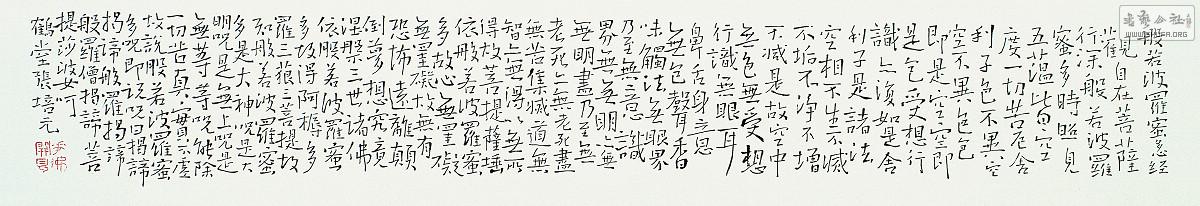 般若波羅蜜多心經
觀自在菩薩
行深般若波羅
蜜多時照見
五蘊皆空
度一切苦厄舍
利子色不異空
空不異色色
即是空空即
是色受想行
識亦復如是舍
利子是諸法
空相不生不滅
不垢不淨不增
不減是故空中
無色無受想
行識無眼耳
鼻舌身意
無色聲香
味觸法無眼界
乃至無意識
界無無明亦無
無明盡乃至無
老死亦無老死盡
無苦集滅道無
智亦無得以無所
得故菩提薩埵
依般若波羅蜜
多故心無罣礙
無罣礙故無有
恐怖遠離顛
倒夢想究竟
涅槃三世諸佛
依般若波羅蜜
多故得阿耨多
羅三藐三菩提故
知般若波羅蜜
多是大神咒是大
明咒是無上咒是
無等等咒能除
一切苦真實不虛
故說般若波羅蜜
多咒即說咒曰揭諦
揭諦般羅揭諦
般羅僧揭諦菩
提莎婆訶
鶴堂張培元